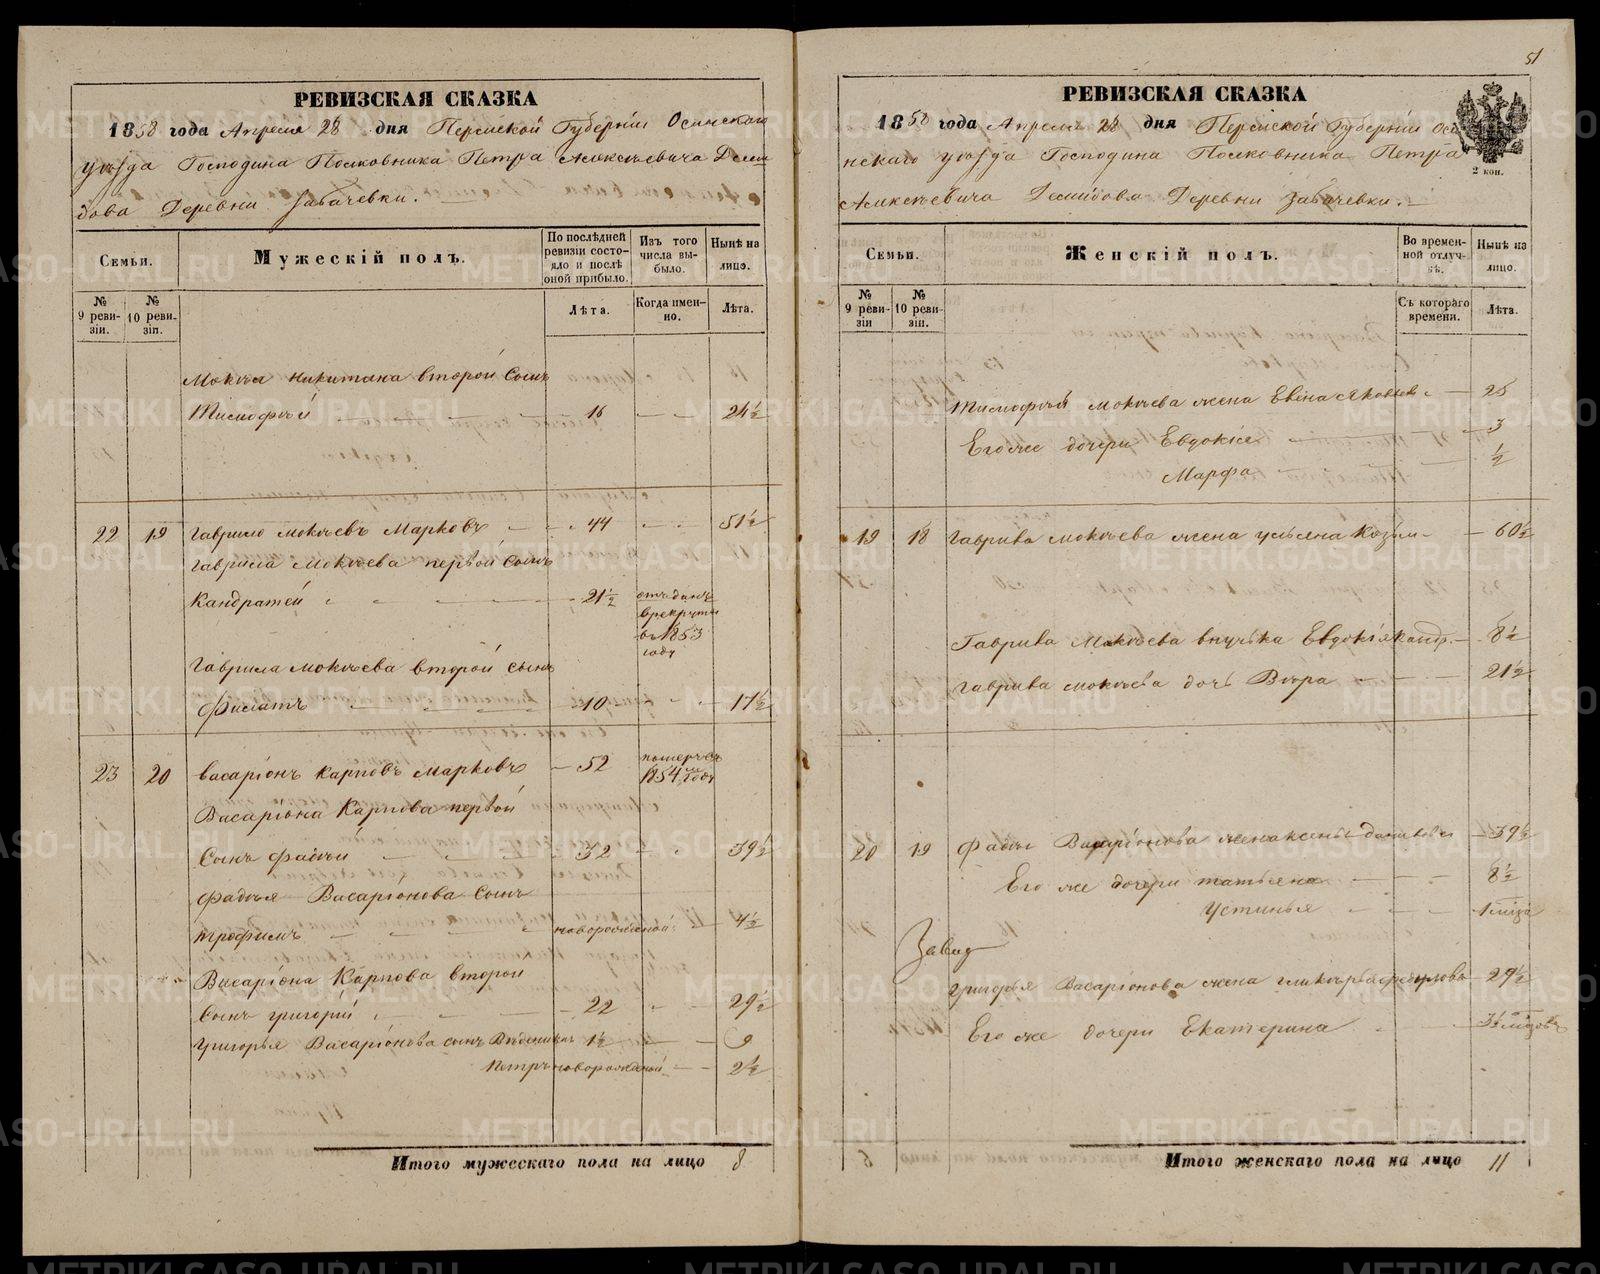 РЕВИЗСКАЯ СКАЗКА
1858 года Апреля 28 дня Пермской Губернiи Осинскаго
уѣзда Господина Полковника Петра Алексѣевича Деми
дова Деревни Забачевки.
Семьи.
Мужескiй полъ.
По послѣдней ревизiи состояло и послѣ оной прибыло.
Изъ того числа выбыло.
Нынѣ на лицо.
№ 9 ревизiи.
№ 10 ревизiи.
Лѣта.
Когда именно.
Лѣта.
Мокѣя Никитина второй сынъ
Тимофѣй 16 24½
22 19 Гаврило Мокѣевъ Марковъ 44 51½
Гаврила Мокѣева первой сынъ
Кандратей 21½ отъданъ
врекруты
въ 1853
году
Гаврила Мокѣева второй сынъ
Филатъ 10 17½
23 20 Васарiонъ Карповъ Марковъ 52 померъ въ
1854 году
Васарiона Карпова первой
сынъ Фадѣй 32 39½
Фадѣя Васарiонова сынъ
Трофимъ новорожденой 4½
Васарiона Карпова второй
сынъ Григорiй 22 29½
Григорья Васарiонова сынъ 1½ 9
Петръ новорожденой 2½
Итого мужескаго пола на лицо 8
51
РЕВИЗСКАЯ СКАЗКА
2 коп.
1858 года Апреля 28 дня Пермской Губернiи Оси
нскаго уѣзда Господина Полковника Петра
Алексѣевича Демидова Деревни Забачевки.
Семьи.
Женскiй полъ.
Во временной отлучкѣ.
Нынѣ на лицо.
№ 9 ревизiи
№ 10 ревизiи.
Съ котораго времени.
Лѣта.
Тимофѣя Мокѣева жена 25
Его же дочери Евдокiя 3
Марфа ½
19 18 Гаврила Мокѣева жена Ульяна Козьм 60½
Гаврила Мокѣева внучька Евдокiя Кандр. 8½
Гаврила Мокѣева дочь Вѣра 21½
20 19 Фадѣя Васарiонова жена Ксенья 39½
Его же дочери Татьяна 8½
Устинья
Григорья Васарiонова жена 29½
Его же дочери Екатерина
Итого женскаго пола на лицо 11
METRIKI.GASO-URAL.RU